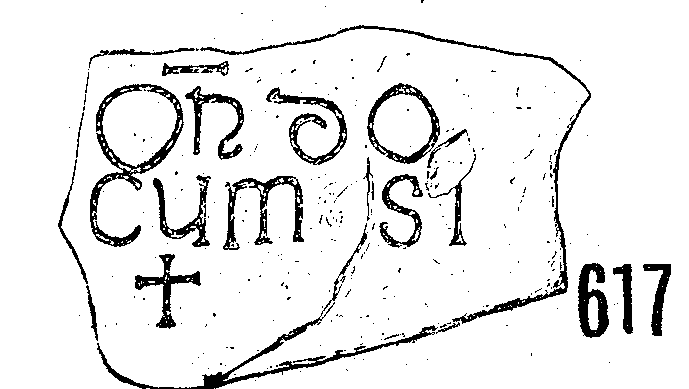 Or̄ do
cum si
+
617